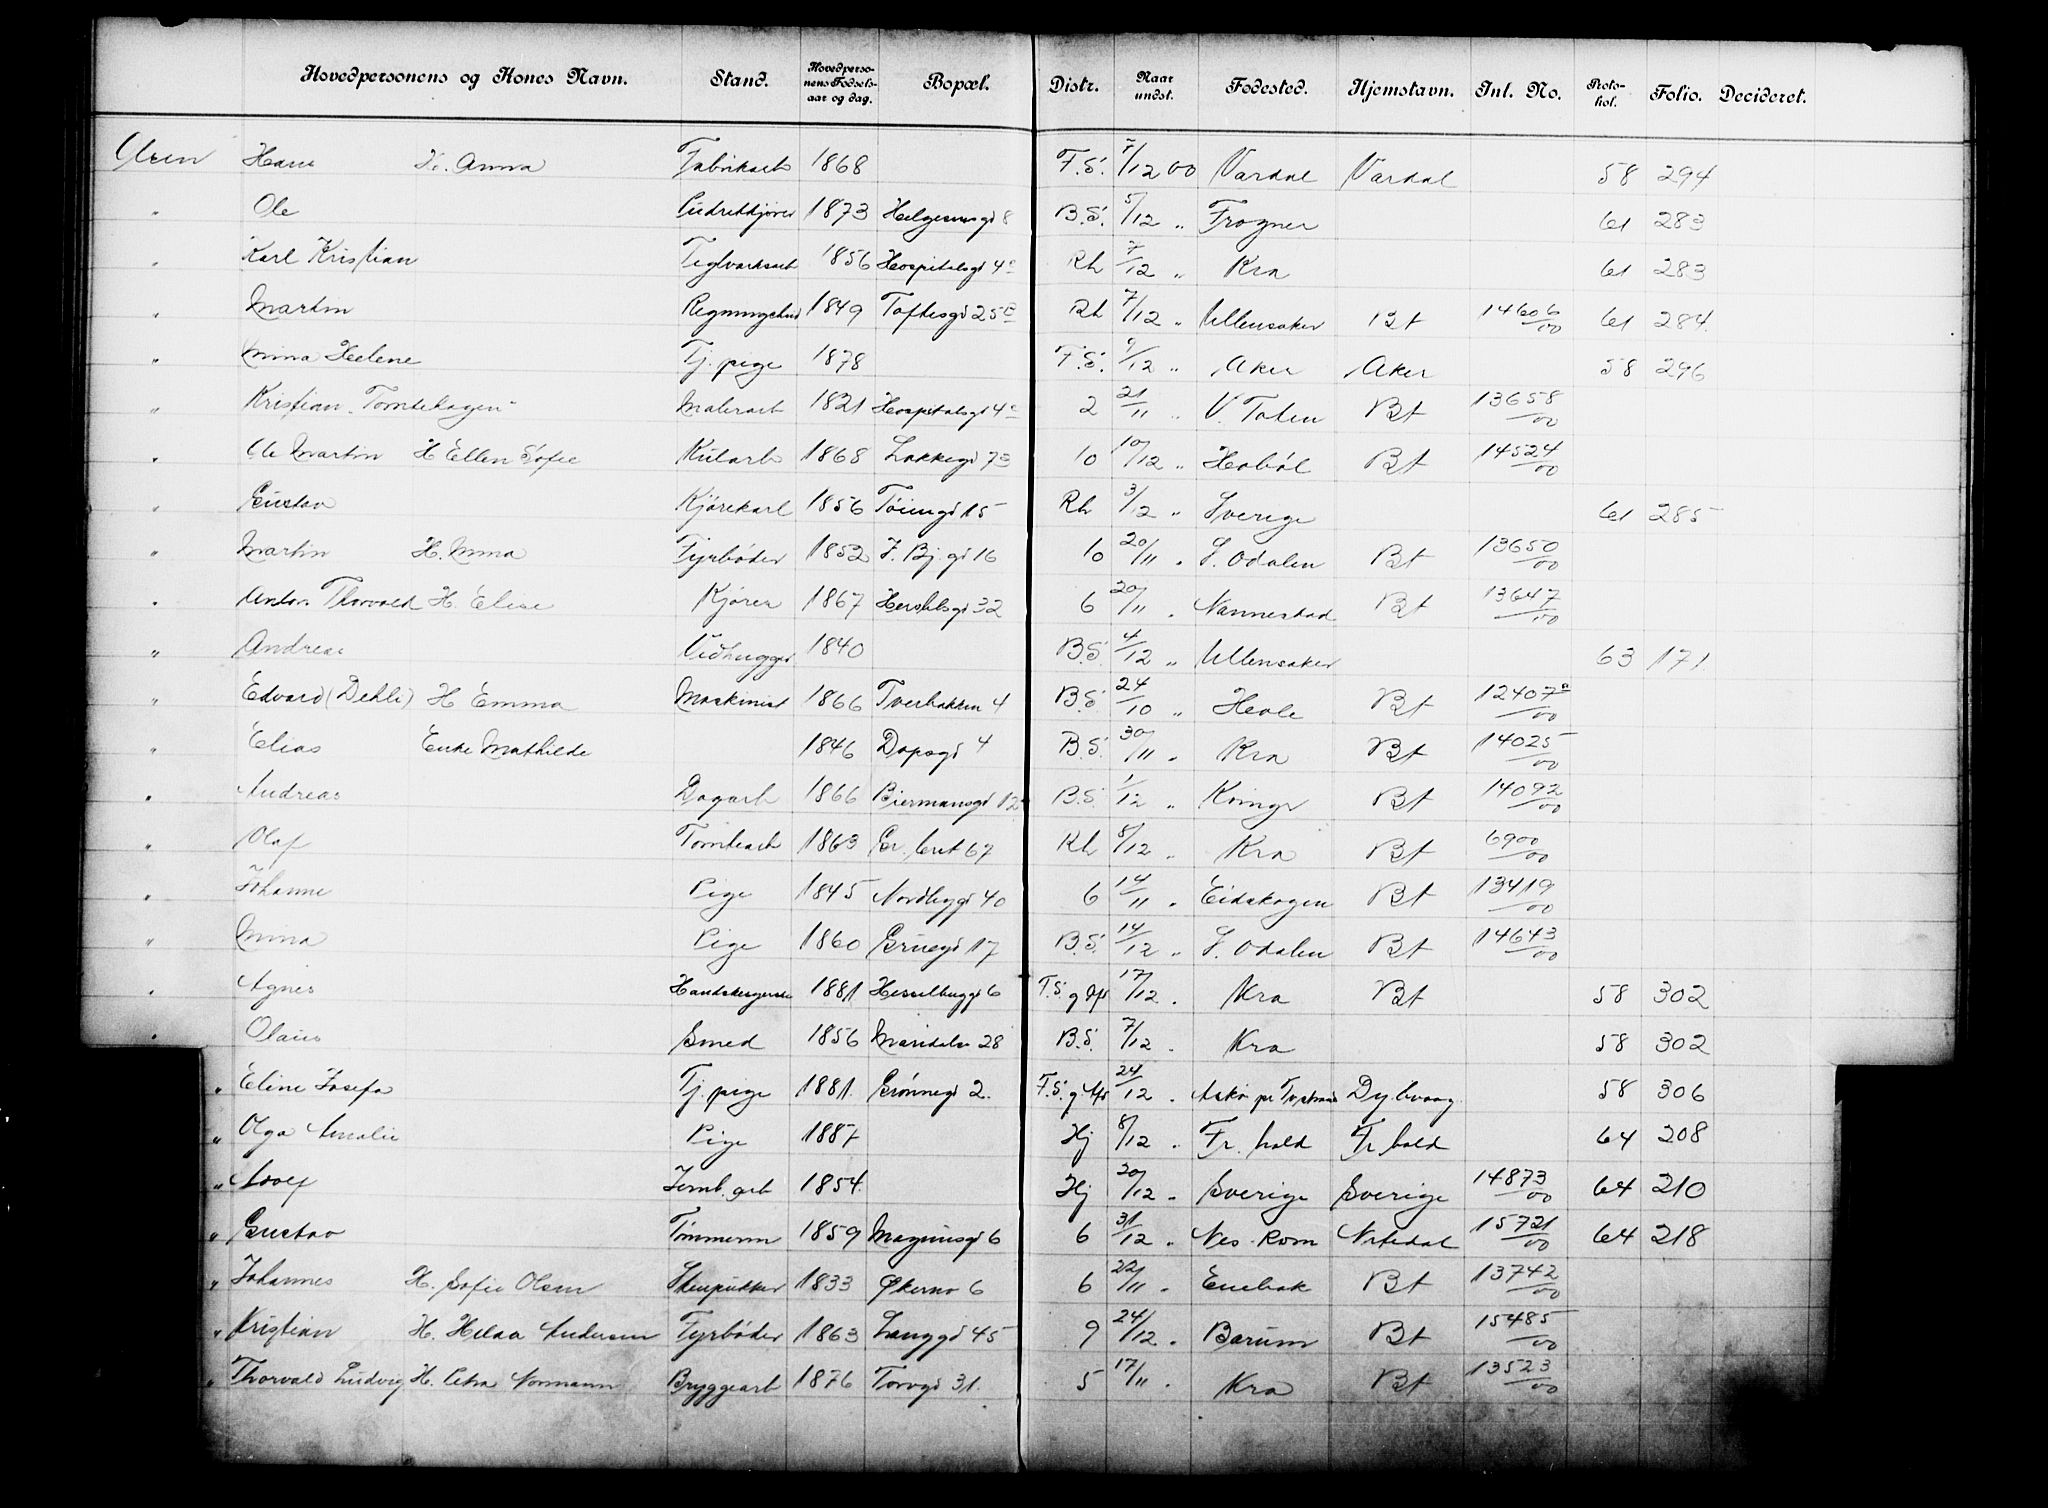 Hovedpersonens og Kones Navn. Stand. Hovedpersonens Fødselsaar og dag. Bopæl. Distr. Naar undst. Fødested. Hjemstavn. Inl. No. Protokol. Folio. Decideret.
Olsen Hans H. Anna Fabrikarb 1868 F.S. 7/12 00 Vardal Vardal 58 294
" Ole 1873 Helgesensgd 8 B.S. 5/12 " Frogner 61 283
" Karl Kristian Teglverksarb 1856 Hospitalsgd 4c Rh 7/12 " Kra 61 283
" Martin 1849 Toftesgd 25B Rh 7/12 " Ullensaker Bt 14606/00 61 284.
" Mina Helene Tj. pige 1878 F.S. 9/12 " Aker Aker 58 296
" Kristian "Tomtehagen" Malerarb 1821 Hospitalsgd 4c 2 21/11 " V. Toten Bt 13658/00
" Ole Martin H Ellen Sofie Kularb 1868 Lakkegd 73 10 10/12 " Hobøl Bt 14524/00
" Gustav Kjørekarl 1856 Tøiengd 15 Rh 3/12 " Sverige 61 285
" Martin H. Mina Fyrbøder 1852 J. Bj. gd 16 10 20/11 " S. Odalen Bt 13650/00
" Anton Thorvald H. Elise Kjører 1867 Herslebsgd 32 6 20/11 " Nannestad Bt 13647/00
" Andreas Vedhugger 1840 B.S. 4/12 " Ullensaker 63 171.
" Edvard (Dehli) H Emma Maskinist 1866 Tverbakken 4 B.S 24/10 " Hole Bt 12407a/00
" Elias Enke Mathilde 1846 Dopsgd 4 B.S. 30/11 " Kra Bt 14025/00
" Andreas Dagarb 1866 Biermansgd 12 B.S. 1/12 " Kvinger Bt 14092/00
" Olaf Tomtearb 1863 Gr. leret 67 Rh 8/12 " Kra Bt 6900/00
" Johanne Pige 1845 Nordbygd 40 6 14/11 " Eidskogen Bt 13419/00
" Mina Pige 1860 Gruegd 17 B.S. 14/12 " S. Odalen Bt 14643/00
" Agnes Handskesyerske 1881 Hesselbggd 6 F.S. g Afr 17/12 " Kra Bt 58 302
" Olaus Smed 1856 Maridalsv 28 B.S. 7/12 " Kra 58 302
" Eline Josefa Tj. pige 1881. Grønnegd 2. F.S. g Afr 24/12 " Askø pr Tvedestrand Dybvaag 58 306
" Olga Amalie Pige 1887 Hj 8/12 " Fr. hald Fr. hald 64 208
" Adolf Jernb. arb 1854. Hj 20/12 " Sverige Sverige 14873/00 64 210
" Gustav Tømmerm 1859 Magnusgd 6 6 31/12 " Nes. Rom Nitedal 15721/00 64 218
" Johannes H. Sofie Olsen Stenpukker 1833 Økernv 6 6 22/11 " Enebak Bt 13742/00
" Kristian H. Hilda Andersen Fyrbøder 1863 Langgd 45 9 24/12 " Barum Bt 15485/00
" Thorvald Ludvig H. Petra Normann Bryggearb 1876 Torvgd 31. 5 17/11 " Kra Bt 13523/00